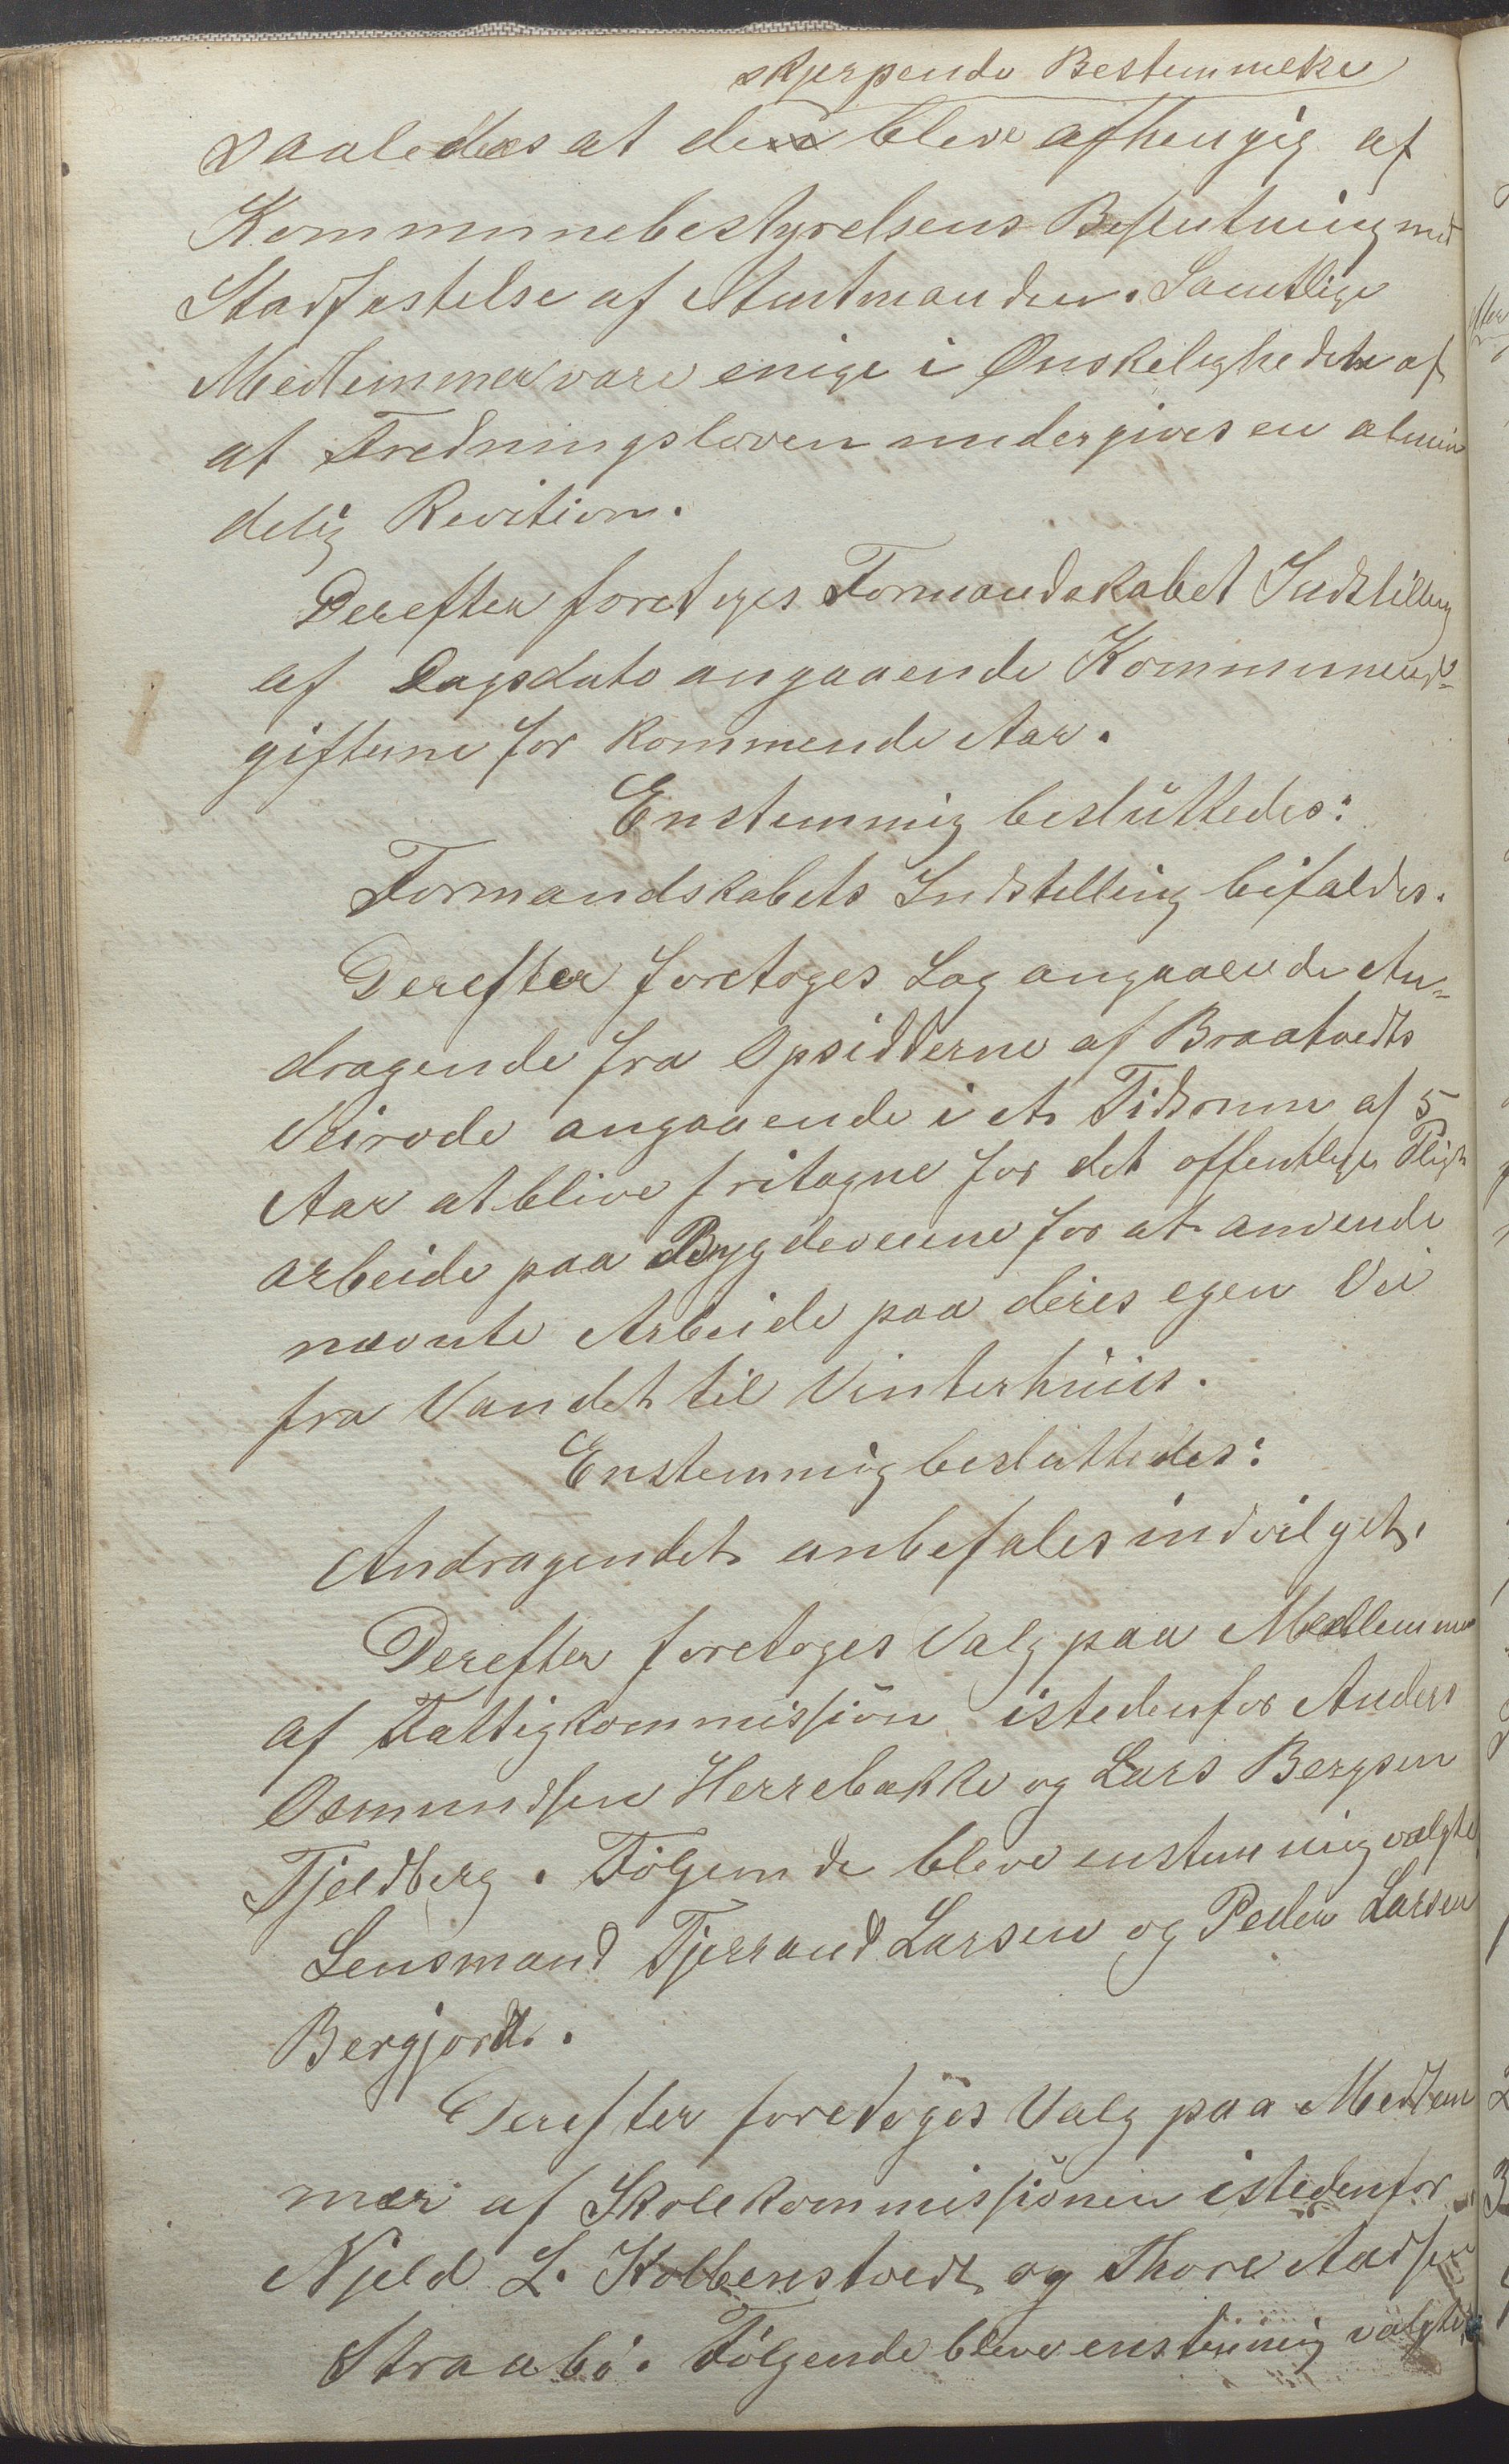 skjerpende Bestemmelse
saaledes at den bleve afhengig af
Kommunebestyrelsens Beslutning med
Stadfæstelse af Amtmanden. Samtlige
Medlemmer vare enige i Ønskeligheden af
at Fredningsloven undergives en almin
delig Revition.
Derefter foretoges Formandskabet Indstilling
af Dagsdato angaaende Kommuneud-
gifterne for kommende Aar.
Enstemmig besluttedes:
Formandskabets Indstilling bifaldes.
Derefter foretoges Sag angaaende An-
dragende fra Opsidderne af Braatvedts
Veirode angaaende i et Tidsrum af 5
Aar at blive fritagne for det offentlige Pligt
arbeide paa Bygdeveiene for at anvende
nævnte Arbeide paa deres egen Vei
fra Vandet til Vinterhuus.
Enstemmig besluttedes:
Andragendet anbefales indvilget.
Derefter foretoges Valg paa Medlemmer
af Fattigkommission istedenfor Anders
Osmundsen Herrebakke og Lars Bergsen
Tjeldberg. Følgende bleve enstemmig valgte
Lensmand Tjerrand Larsen og Peder Larsen
Bergjord.
Derefter foretoges Valg paa Medlem
mer af Skolekommissionen istedenfor
Njeld L. Holbenstvedt og Thore Aadsen
Straabø. Følgende bleve enstemmig valgte